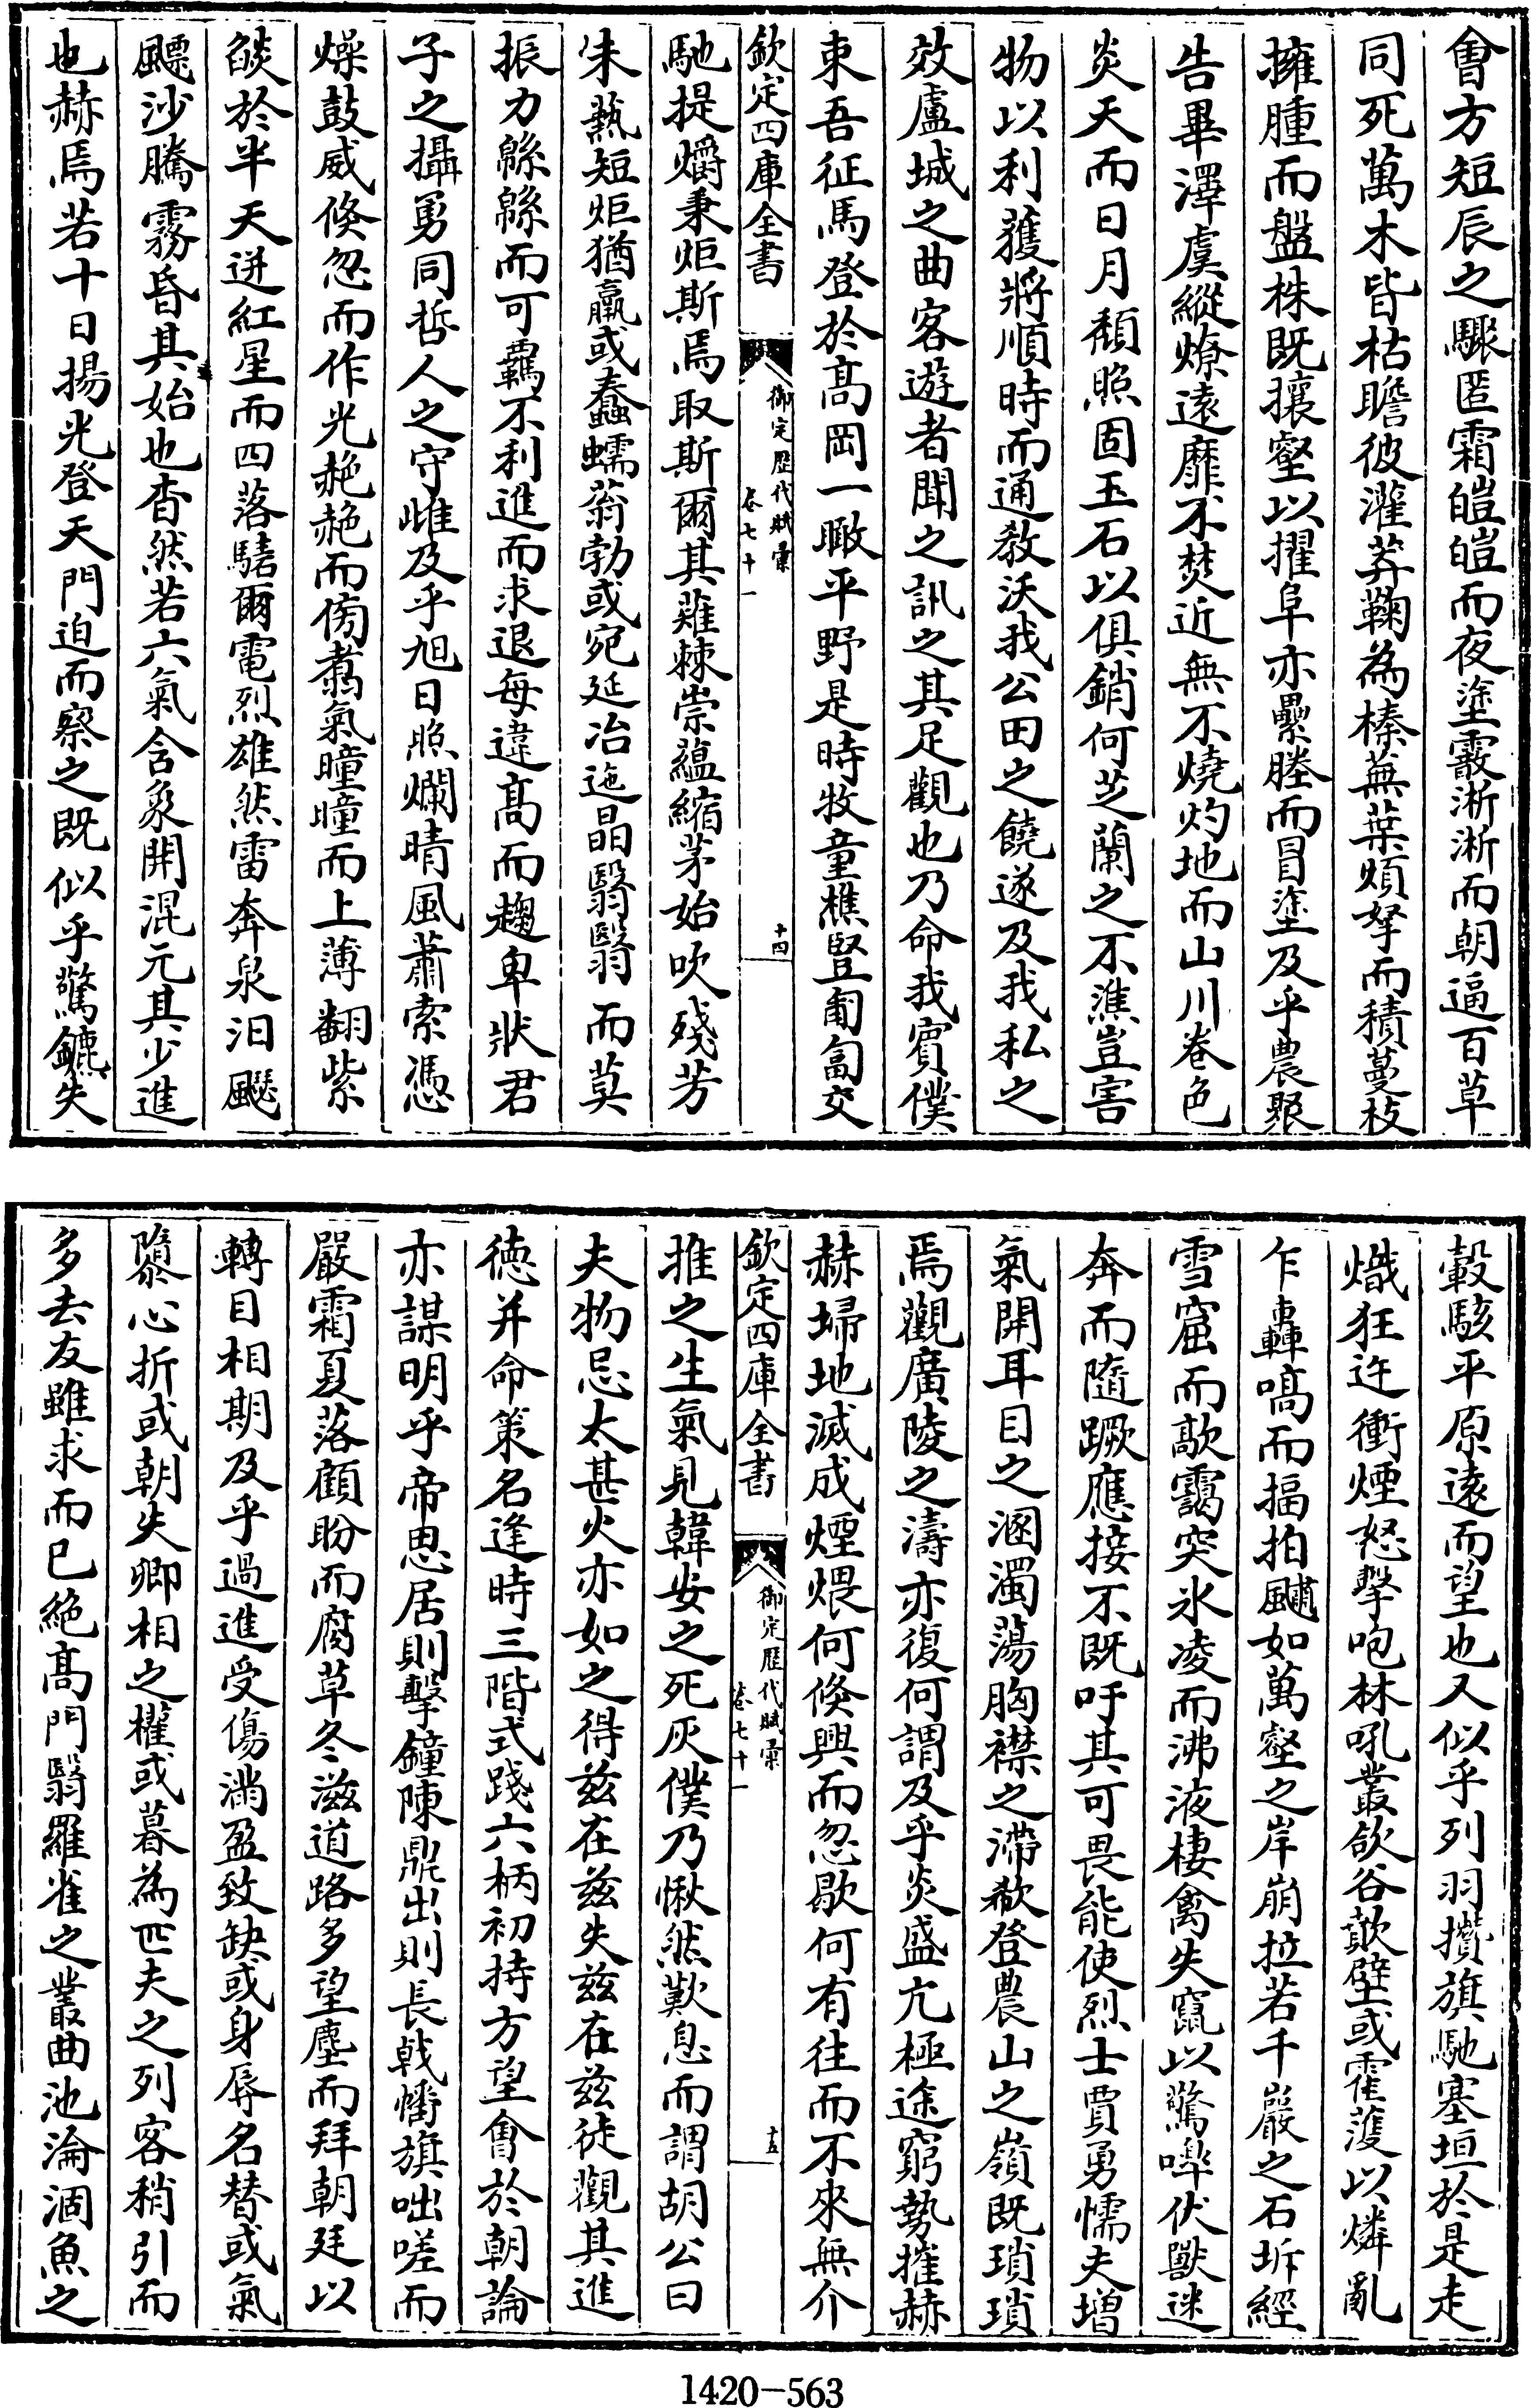 會方短辰之驟匿霜皚皚而夜塗霰淅淅而朝逼百草
同死萬木皆枯瞻彼灌莽鞠為榛蕪葉煩拏而積蔓枝
擁腫而盤株既攘壑以擢阜亦疊塍而冒塗及乎農聚
告畢澤虞縱燎遠靡不焚近無不燒灼地而山川卷色
炎天而日月頹照固玉石以俱銷何芝蘭之不潐豈害
物以利獲將順時而通教沃我公田之饒遂及我私之
效盧城之曲客遊者聞之訊之其足觀也乃命我賓僕
東吾征馬登於高岡一瞰平野是時牧童樵豎匍匐交
欽定四庫全書
御定歷代賦彙
卷七十一
十四
馳提爝秉炬斯焉取斯爾其薙棘崇蘊縮茅始吹殘芳
未爇短炬猶羸或蠢蠕蓊勃或宛延冶迤晶翳翳而莫
振力緜緜而可羈不利進而求退每違高而趨卑狀君
子之攝勇同哲人之守雌及乎旭日照爛晴風蕭索憑
燥鼓威倏忽而作光赩赩而傍翥氣曈曈而上薄翻紫
燄於半天迸紅星而四落驕爾電烈雄然雷奔泉汩颷
飄沙騰霧昏其始也杳然若六氣含象開混元其少進
也赫焉若十日揚光登天門迫而察之既似乎驚鑣失
轂駭平原遠而望也又似乎列羽攢旗馳塞垣於是走
熾狂迕衝煙怒擊咆林吼叢欱谷歕壁或霍濩以燐亂
乍轟嗃而揊拍颵如萬壑之岸崩拉若千巖之石坼經
雪窟而歊靄突氷凌而沸液棲禽失竄以驚嘷伏獸迷
奔而隨蹶應接不既吁其可畏能使烈士賈勇懦夫增
氣開耳目之溷濁蕩胸襟之滯欷登農山之嶺既瑣瑣
焉觀廣陵之濤亦復何謂及乎炎盛亢極途窮勢摧赫
赫掃地滅成煙煨何倏興而忽歇何有往而不來無介
欽定四庫全書
御定歷代賦彙
卷七十一
十五
推之生氣見韓安之死灰僕乃愀然歎息而謂胡公曰
夫物忌太甚火亦如之得兹在兹失兹在兹徒觀其進
德并命策名逢時三階式踐六柄初持方望會於朝論
亦謀明乎帝思居則擊鐘陳鼎出則長戟幡旗咄嗟而
嚴霜夏落顧盼而腐草冬滋道路多望塵而拜朝廷以
轉目相期及乎過進受傷滿盈致缺或身辱名替或氣
隳心折或朝失卿相之權或暮為匹夫之列客稍引而
多去友雖求而已絕高門翳羅雀之叢曲池淪涸魚之
1420-563